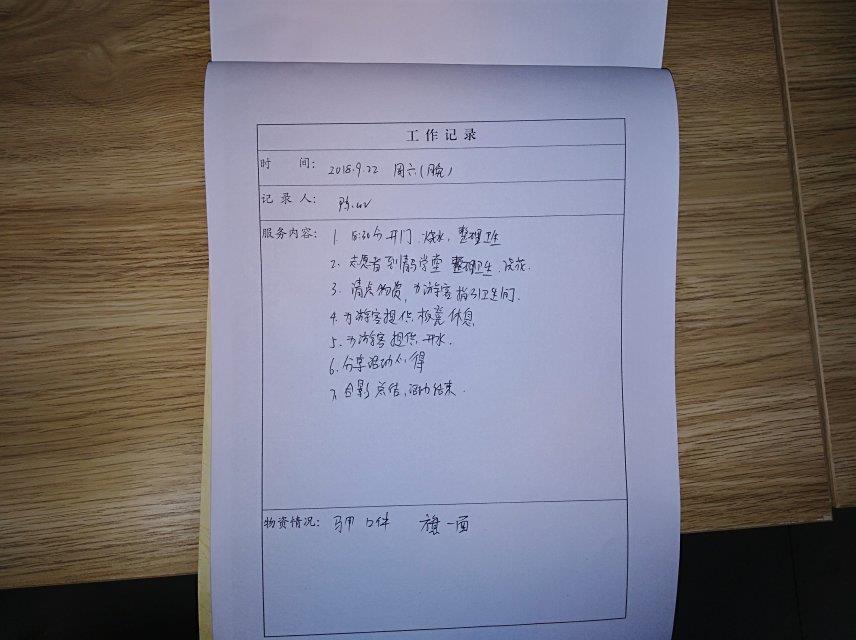 工作记录
时 间： 2018.9.22 周六（晚）
记录人：
服务内容： 1. 开门，烧水，整理卫生
2. 志愿者到 学堂 整理卫生，浇花.
3. 清点物资，为游客指引卫生间.
4. 为游客提供板凳休息
5. 为游客提供开水.
6. 分享活动心得
7. 合影总结，活动结束.
物资情况： 马甲 件 旗一面